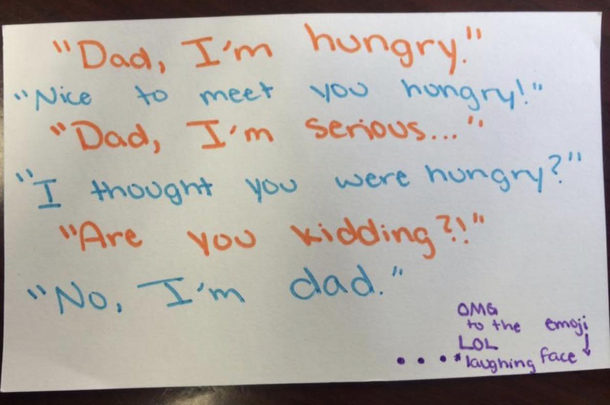 "Dad, I'm hungry."
"Nice to meet you hungry!"
"Dad, I'm serious..."
"I thought you were hungry?"
"Are you kidding?!"
"No, I'm dad."
OMG
to the emoji
LOL
....*laughing face